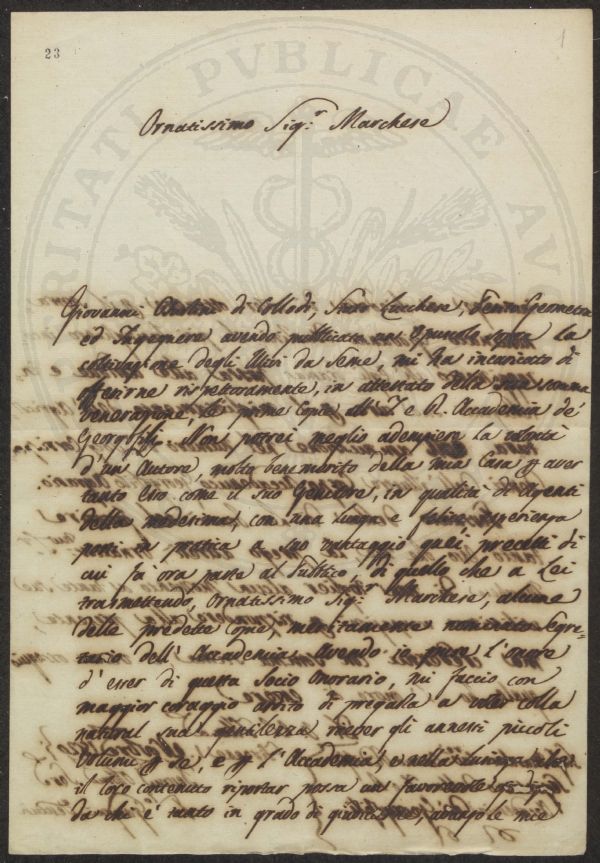 23
1
PROSPERITATI PVBLICAE AVGENDAE
Ornatissimo Sig.r Marchese
Giovanni di Collodi, Stato Lucchese, Perito Geometra
ed Ingegnere avendo publicato un Opuscolo sopra la
coltivazione degli Ulivi da seme, mi ha incaricato di
offerirne rispettosamente, in attestato della sua somma
venerazione, le prime Copie all' I e R. Accademia de'
Georgofili. Non potrei meglio adempiere la volontà
d'un' Autore, molto benemerito della mia Casa p aver
tanto Esso come il suo Genitore, in qualità di Agenti
della medesima, con una lunga e felice esperienza
posti in pratica a suo vantaggio quei precetti di
cui fa ora parte al Publico, di quello che a Lei
trasmettendo, Ornatissimo Sig.r Marchese, alcune
delle predette Copie, meritamente nominato Segre=
tario dell' Accademia. Avendo io pure l'onore
d'esser di questa Socio Onorario, mi faccio con
maggior coraggio ardito di pregarla a voler colla
natural sua gentilezza riceber gli annessi piccoli
Volumi p Se, e p l'Accademia, e nella lusinga che
il loro contenuto riportar possa un favorevole
da chi è tanto in grado di giudicarne, le mie